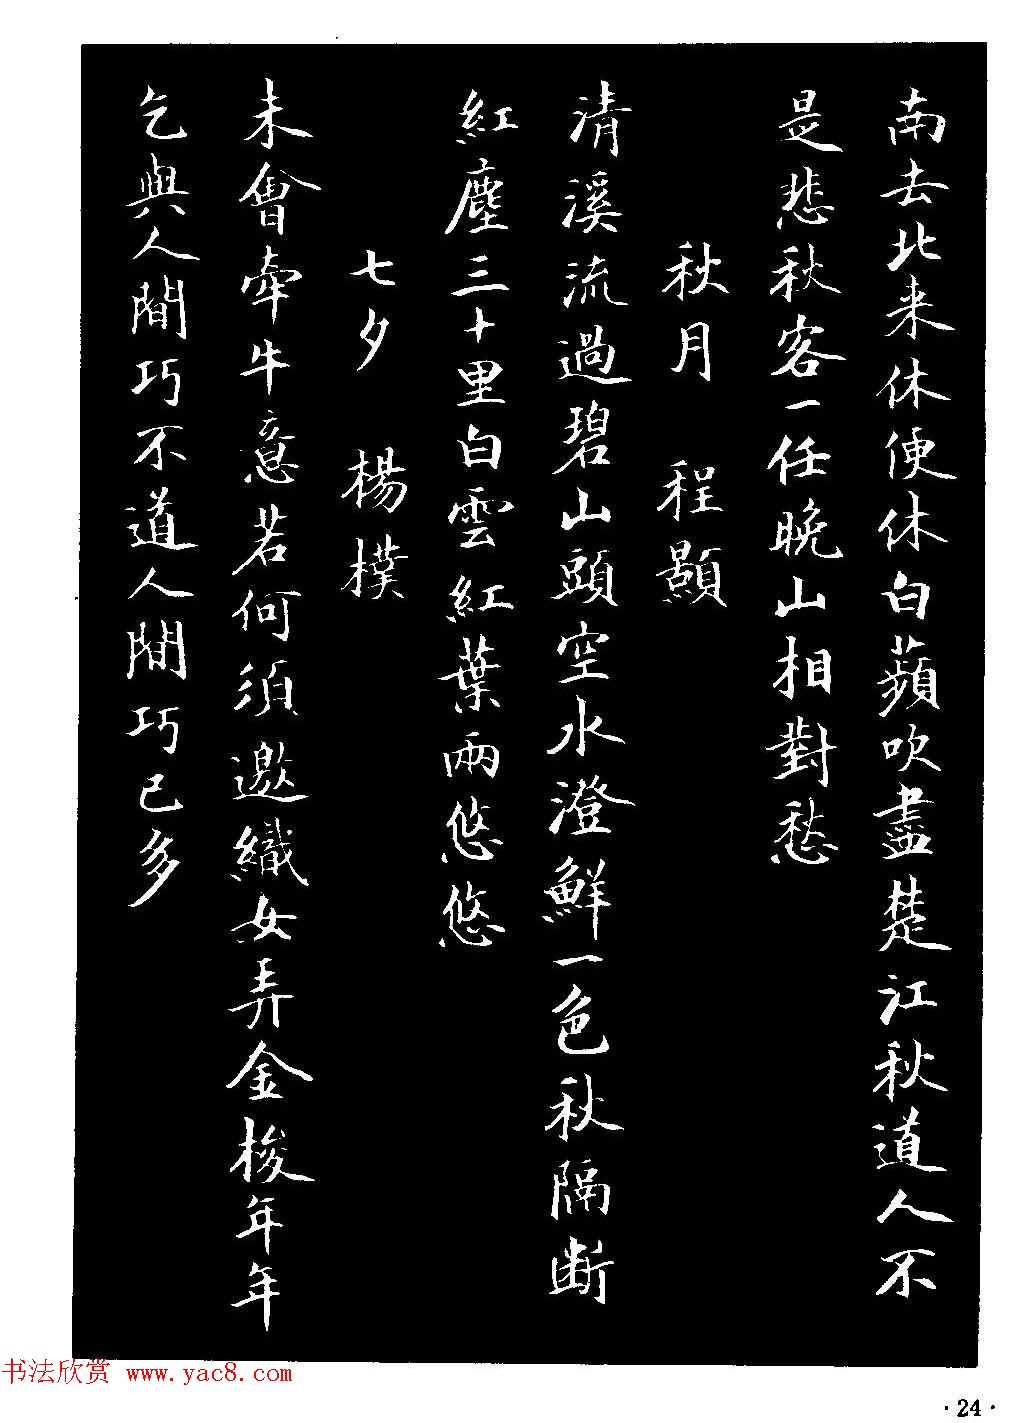 南去北来休便休白蘋吹盡楚江秋道人不
是悲秋客一任晚山相對愁
秋月 程顥
清溪流過碧山頭空水澄鮮一色秋隔斷
紅塵三十里白雲紅葉兩悠悠
七夕 楊樸
未會牽牛意若何須邀織女弄金梭年年
乞與人間巧不道人間巧已多
书法欣赏 www.yac8.com
·24·